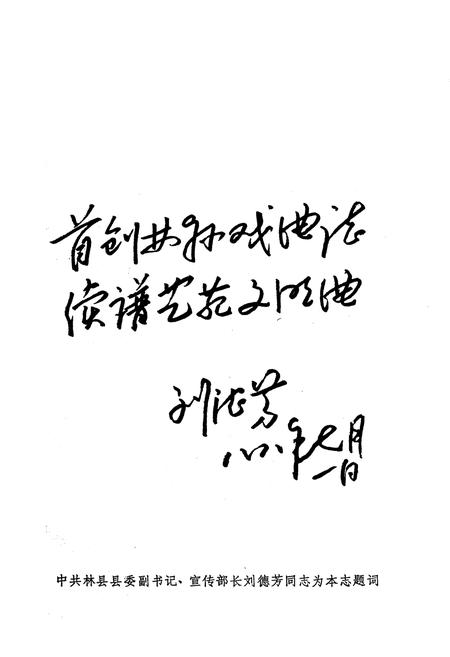 首创林縣戏曲誌
续谱艺苑文明曲
刘德芳
八八年七月
一日
中共林县县委副书记、宣传部长刘德芳同志为本志题词